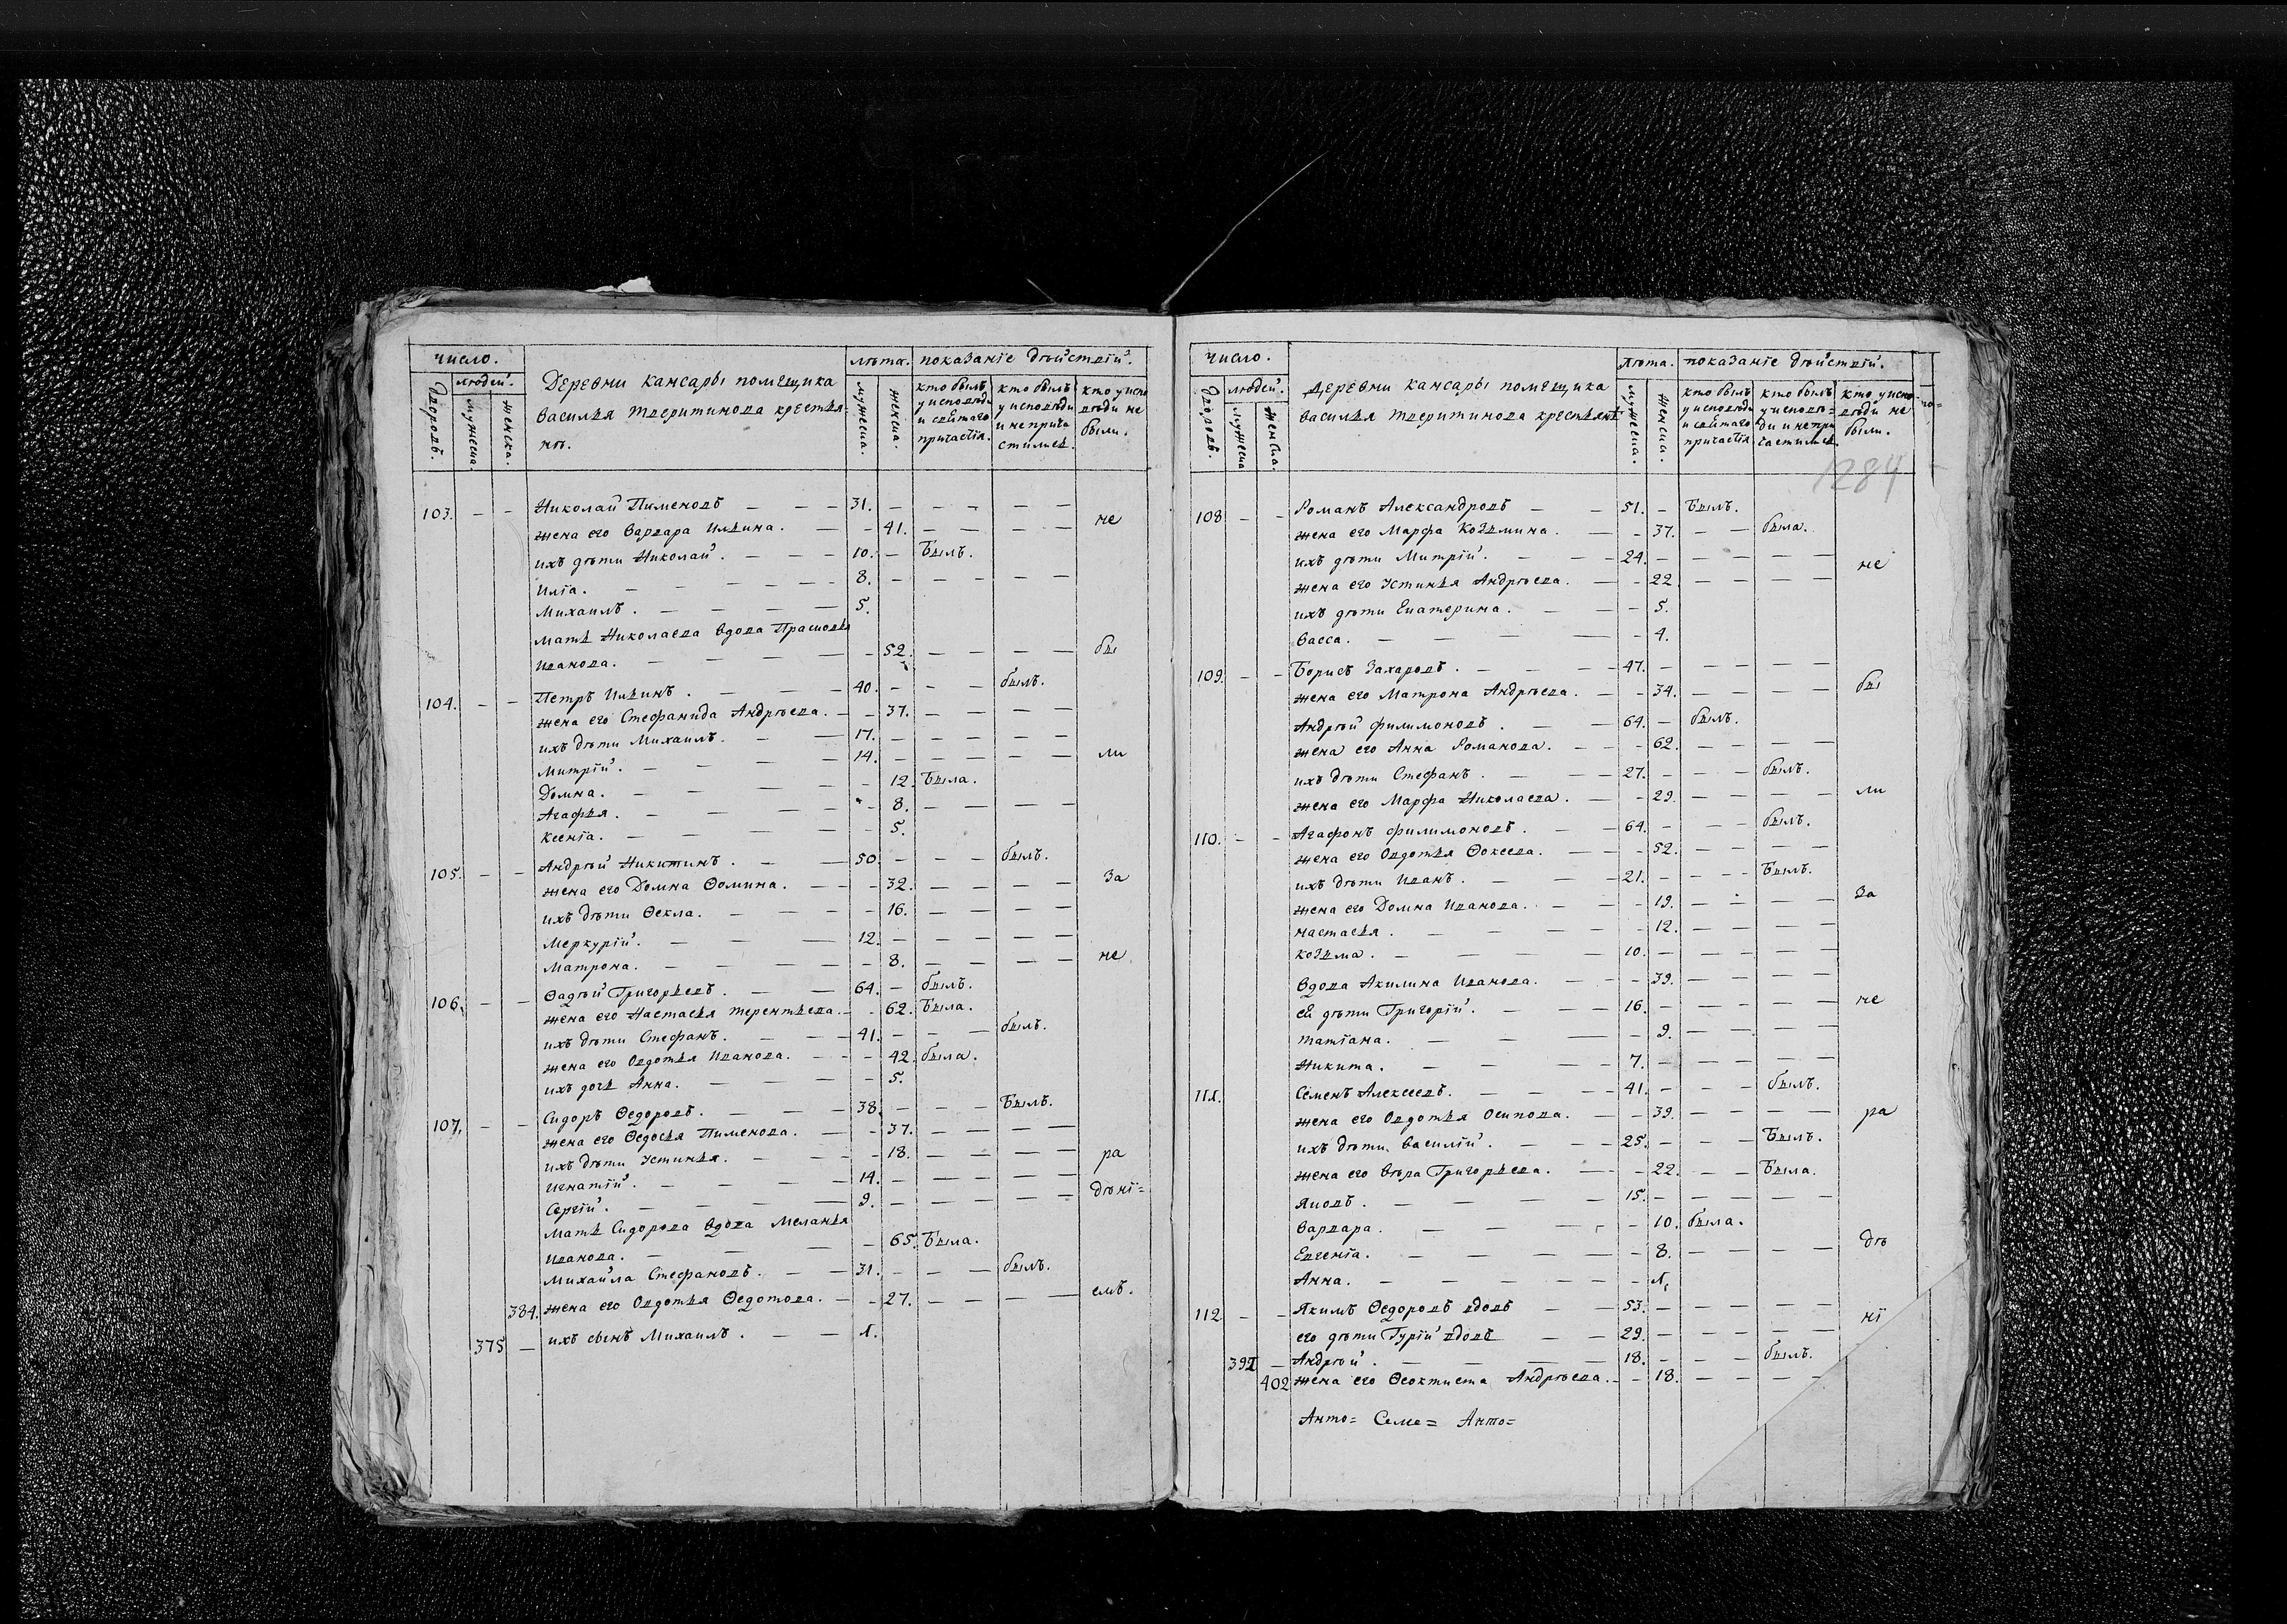 число.
людей.
дворовъ.
мужеска.
женска.
Деревни Кансары помещика
Василья Тверитинова крестья-
нѣ.
лѣта.
мужеска.
женска.
показанїе дѣйствїй.
кто былъ
у исповѣди
и святаго
причастїя.
кто былъ
у исповѣди
и не прича
стился.
кто у испо
вѣди не
были.
103. Николай Пименовъ 31. не
жена его Варвара Ильина. 41.
ихъ дѣти Николай. 10. Былъ.
Илїа. 8.
Михаилъ. 5.
мать Николаева вдова Прасковья
Иванова. 52. бы
104. Петръ Ильинъ. 40. былъ.
жена его Стефанида Андрѣева. 37.
ихъ дѣти Михаилъ. 17.
Митрїй. 14. ли
Домна. 12. Была.
Агафья. 8.
Ксенїа. 5.
105. Андрѣй Никитинъ. 50. былъ.
жена его Домна Ѳомина. 32. За
ихъ дѣти Ѳекла. 16.
Меркурїй. 12.
Матрона. 8. не
106. Ѳадѣй Григорьевъ. 64. былъ.
жена его Настасья Терентьева. 62. Была.
ихъ дѣти Стефанъ. 41. былъ.
жена его Овдотья Иванова. 42. была.
ихъ дочь Анна. 5.
107. Сидоръ Ѳедоровъ. 38. Былъ.
жена его Ѳедосья Пименова. 37.
ихъ дѣти Устинья. 18. ра
Игнатїй. 14.
Сергїй. 9. дѣнї=
Мать Сидорова вдова Меланья
Иванова. 65. Была.
Михайла Стефановъ. 31. былъ.
384. жена его Овдотья Ѳедотова. 27. емъ.
375 ихъ сынъ Михаилъ. 1.
число.
людей.
дворовъ.
мужеска
женска.
Деревни Кансары помещика
Василья Тверитинова крестьянѣ
лѣта.
мужеска.
женска.
показанїе дѣйствїй.
кто былъ
у исповѣди
и святаго
причастїя.
кто былъ
у исповѣ=
ди и не при
частился.
кто у испо
вѣди не
были.
1284
108 Романъ Александровъ 51. Былъ.
жена его Марфа Козьмина. 37. была.
ихъ дѣти Митрїй. 24. не
жена его Устинья Андрѣева. 22
ихъ дѣти Екатерина. 5.
Васса. 4.
109. Борисъ Захаровъ. 47.
жена его Матрона Андрѣева. 34. бы
Андрѣй Филимоновъ. 64. былъ.
жена его Анна Романова. 62.
ихъ дѣти Стефанъ. 27. былъ.
жена его Марфа Николаева. 29. ли
110. Агафонъ Филимоновъ. 64. былъ.
жена его Овдотья Ѳокеева. 52.
ихъ дѣти Иванъ. 21. Былъ.
жена его Домна Иванова. 19. За
Настасья. 12.
Козьма. 10.
Вдова Акилина Иванова. 39.
ея дѣти Григорїй. 16. не
Татїана. 9.
Никита. 7.
111. Семенъ Алексеевъ. 41. былъ.
жена его Овдотья Осипова. 39. ра
ихъ дѣти Василїй. 25. Былъ.
жена его Вѣра Григорьева. 22. Была.
Яковъ. 15.
Варвара. 10. была.
Евгенїа. 8. дѣ
Анна. 1.
112 Якимъ Ѳедоровъ вдовъ 53. нї
его дѣти Гурїй вдовъ 29.
392 Андрѣй. 18. былъ.
402 жена его Ѳеоктиста Андрѣева. 18.
Анто= Семе= Анто=